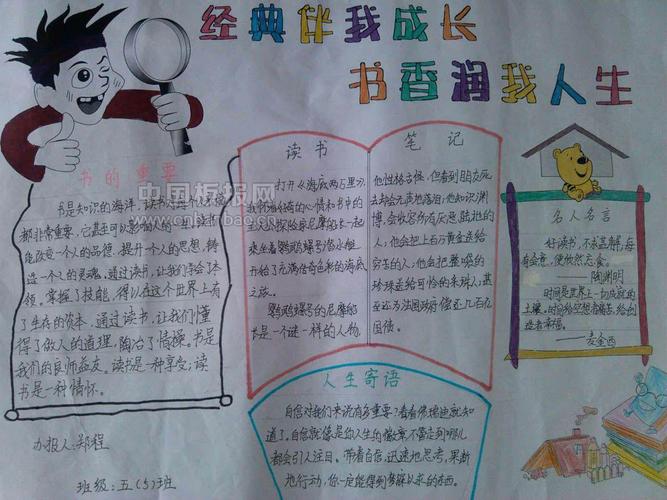 经典伴我成长
书香润我人生
书的重要
书是知识的海洋，读书对每个人来说
都非常重要。它甚至可以影响人的一生，读书
能改变一个人的品德，提升一个人的思想，铸
造一个人的灵魂。通过读书，让我们学会了本
领，掌握了技能，得以在这个世界上有
了生存的资本，通过读书，让我们懂
得了做人的道理，陶冶了情操。书是
我们的良师益友。读书是一种享受；读
书是一种情怀。
办报人：郑程
班级：五(5)班
读书
打开《海底两万里》，
我怀着 的心情和书中的
探险家尼摩船长一起
乘坐着鹦鹉螺号潜水艇
开始了充满传奇色彩的海底
之旅。
鹦鹉螺号的尼摩船
长是一个谜一样的人物，
笔记
他性格古怪，但看到朋友死
去却会无声地落泪；他知识渊
博，会收容所有厌恶陆地的
人；他会把上百万黄金送给
穷苦的人；他会把整袋的
珍珠送给可怜的采珠人，甚
至还为法国政府偿还几百亿
国债。
人生寄语
自信对我们来说有多重要？看看佛理迪就知
道了。自信就像是你人生的徽章不管走到哪儿
都会引人注目。带着自信，迅速地思考，果断
地行动，你一定能得到梦寐以来的东西。
名人名言
好读书，不求甚解，每
有会意，便欣然忘食。
——陶渊明
时间是世界上一切成就的
土壤。时间给空想者痛苦，给创
造者幸福。
——麦金西
中国板报网